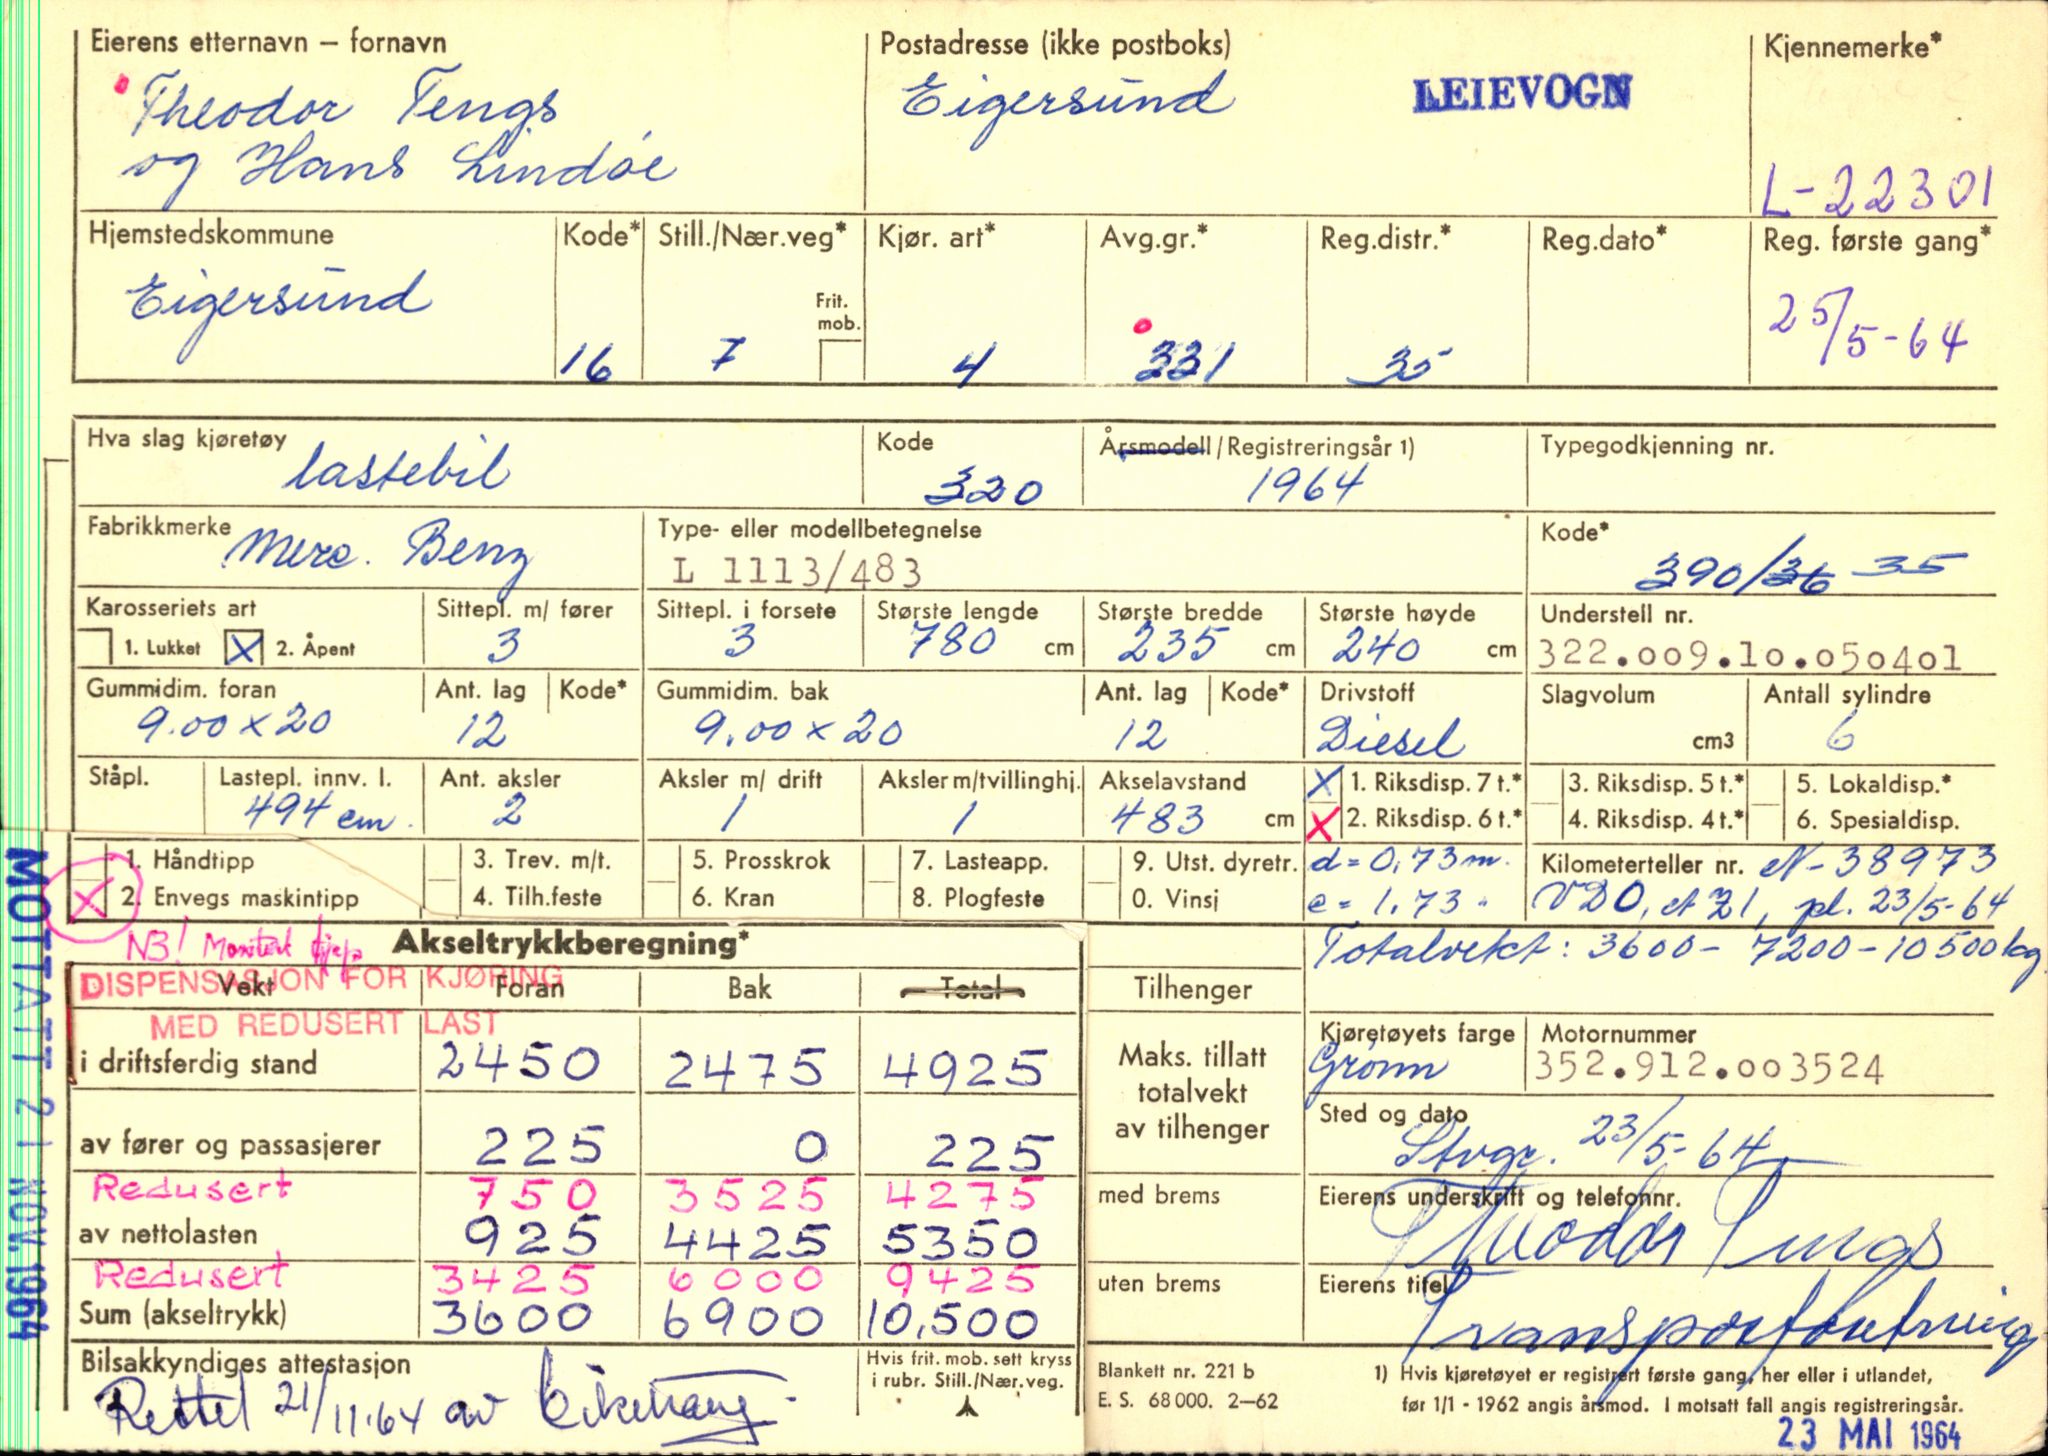 Eierens etternavn – fornavn
Theodor Tengs
og Hans Lindøe
Postadresse (ikke postboks)
Eigersund
LEIEVOGN
Kjennemerke*
L-22301
Hjemstedskommune
Eigersund
Kode*
16
Still./Nær.veg*
7
Frit.
mob.
Kjør. art*
4
Avg.gr.*
331
Reg.distr.*
35
Reg.dato*
Reg. første gang*
25/5-64
Hva slag kjøretøy
lastebil
Kode
320
Årsmodell/Registreringsår 1)
1964
Typegodkjenning nr.
Fabrikkmerke
Merc. Benz
Type- eller modellbetegnelse
L 1113/483
Kode*
390/36 35
Karosseriets art
1. Lukket X 2. Åpent
Sittepl. m/ fører
3
Sittepl. i forsete
3
Største lengde
780 cm
Største bredde
235 cm
Største høyde
240 cm
Understell nr.
322.009.10.050401
Gummidim. foran
9.00 x 20
Ant. lag
12
Kode*
Gummidim. bak
9.00 x 20
Ant. lag
12
Kode*
Drivstoff
Diesel
Slagvolum
cm3
Antall sylindre
6
Ståpl.
Lastepl. innv. l.
494 cm.
Ant. aksler
2
Aksler m/ drift
1
Aksler m/tvillinghj.
1
Akselavstand
483 cm
X 1. Riksdisp. 7 t.*
X 2. Riksdisp. 6 t.*
3. Riksdisp. 5 t.*
4. Riksdisp. 4 t.*
5. Lokaldisp.*
6. Spesialdisp.
1. Håndtipp
X 2. Envegs maskintipp
3. Trev. m/t.
4. Tilh.feste
5. Prosskrok
6. Kran
7. Lasteapp.
8. Plogfeste
9. Utst. dyretr.
0. Vinsj
d = 0,73 m.
c = 1,73 "
Kilometerteller nr. N-38973
VDO, pl. 23/5-64
Totalvekt: 3600 – 7200 – 10500 kg
NB! Montert tipp
Akseltrykkberegning*
DISPENSASJON FOR KJØRING
MED REDUSERT LAST
Vekt Foran Bak Total
i driftsferdig stand 2450 2475 4925
av fører og passasjerer 225 0 225
Redusert 750 3525 4275
av nettolasten 925 4425 5350
Redusert 3425 6000 9425
Sum (akseltrykk) 3600 6900 10,500
Tilhenger
Maks. tillatt
totalvekt
av tilhenger
med brems
uten brems
Kjøretøyets farge
Grønn
Motornummer
352.912.003524
Sted og dato
Stvgr. 23/5-64
Eierens underskrift og telefonnr.
Theodor Tengs
Eierens titel
Transportforretning
Bilsakkyndiges attestasjon
Rettet 21/11.64 av
Hvis frit. mob. sett kryss
i rubr. Still./Nær.veg.
Blankett nr. 221 b
E. S. 68 000. 2—62
1) Hvis kjøretøyet er registrert første gang, her eller i utlandet,
før 1/1 - 1962 angis årsmod. I motsatt fall angis registreringsår.
23 MAI 1964
MOTTATT 21 NOV. 1964